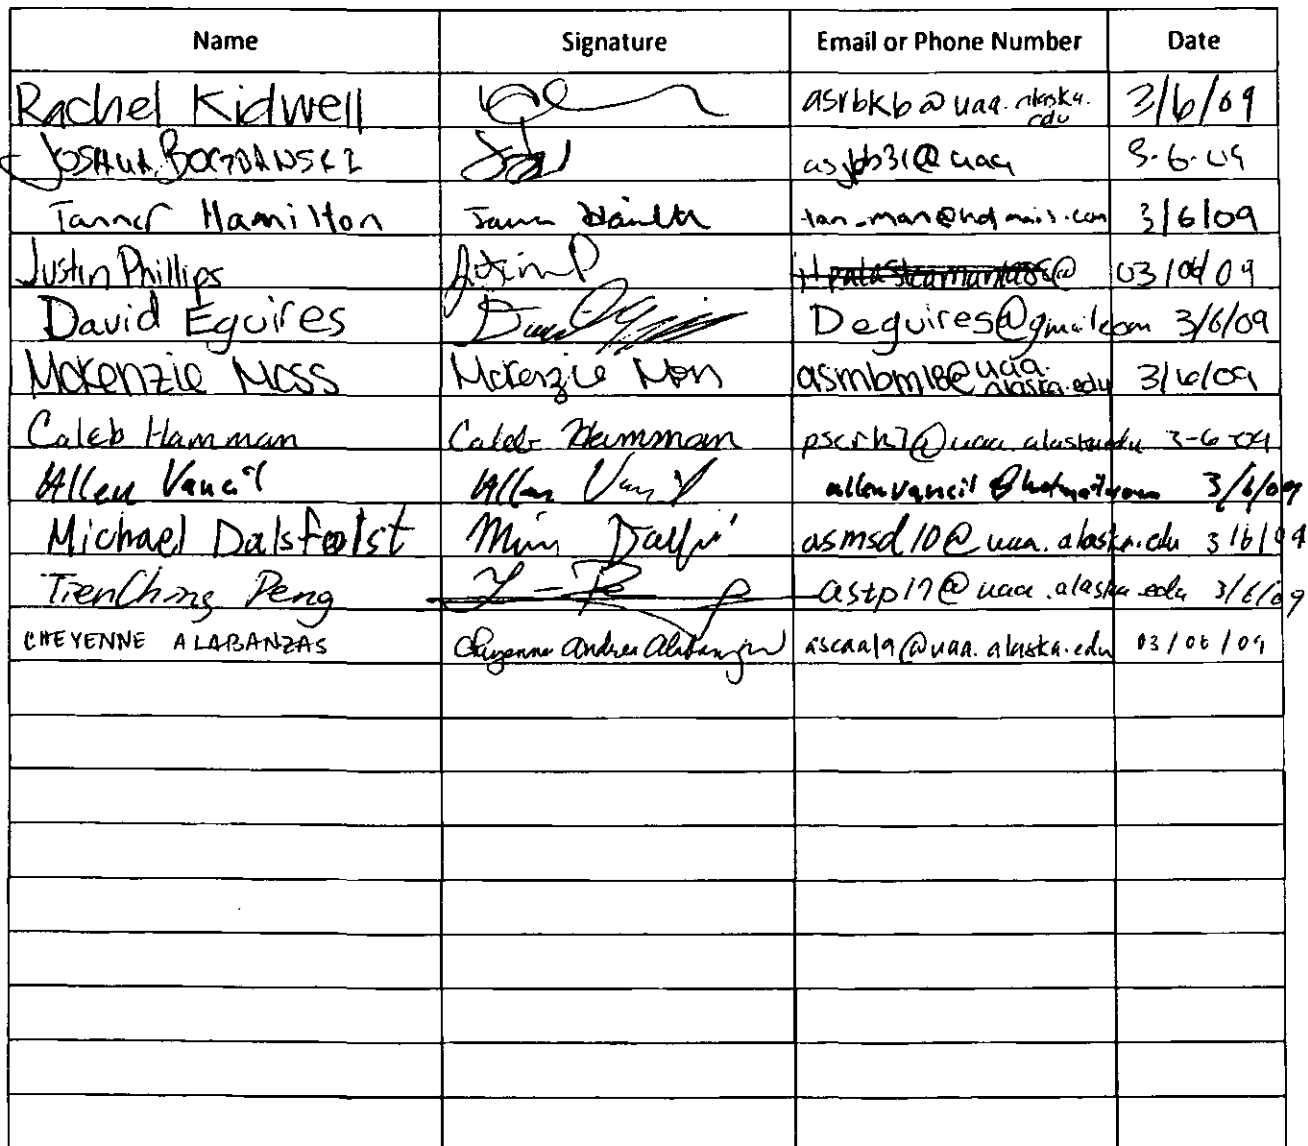 Name Signature Email or Phone Number Date
Rachel Kidwell asrbkb@uaa.alaska.edu 3/6/09
JOSHUA BOGDANSKI asjbb31@uaa 3-6-09
Tanner Hamilton Tanner Hamilton tan_man@hotmail.com 3/6/09
Justin Phillips Justin P 03/06/09
David Eguires Deguires@gmail.com 3/6/09
McKenzie Moss McKenzie Moss asmbm18@uaa.alaska.edu 3/6/09
Caleb Hamman Caleb Hamman pscrh7@uaa.alaska.edu 3-6-09
Allen Vancil Allen Vancil allenvancil@hotmail.com 3/6/09
Michael Dalsfolst asmsd10@uaa.alaska.edu 3/6/09
TienChing Peng astp17@uaa.alaska.edu 3/6/09
CHEYENNE ALABANZAS Cheyenne Andrea Alabanzas ascaa19@uaa.alaska.edu 03/06/09